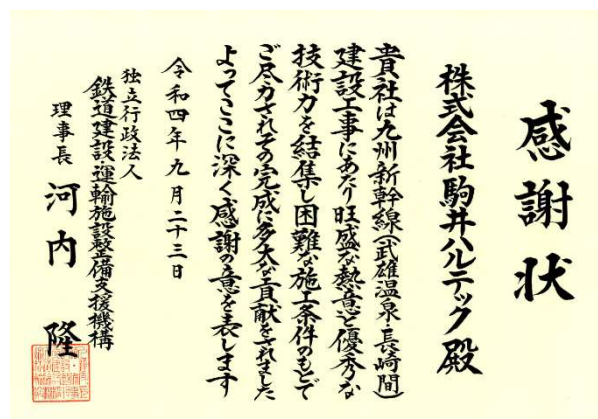 感謝状
株式会社駒井ハルテック殿
貴社は九州新幹線(武雄温泉・長崎間)
建設工事にあたり旺盛な熱意と優秀な
技術力を結集し困難な施工条件のもとで
ご尽力されその完成に多大な貢献をされました
よってここに深く感謝の意を表します
令和四年九月二十三日
独立行政法人
鉄道建設・運輸施設整備支援機構
理事長 河内 隆